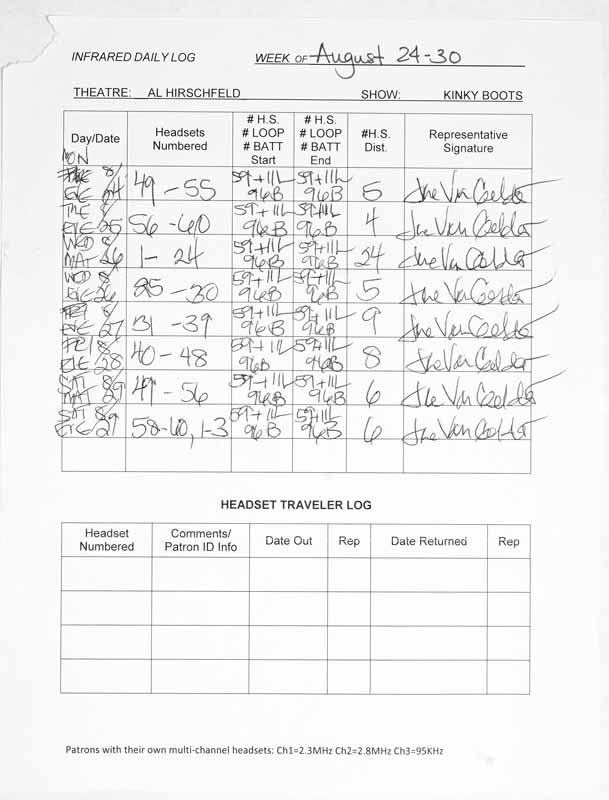 INFRARED DAILY LOG WEEK OF August 24-30
THEATRE: AL HIRSCHFELD SHOW: KINKY BOOTS
Day/Date Headsets Numbered # H.S. # LOOP # BATT Start # H.S. # LOOP # BATT End #H.S. Dist. Representative Signature
MON 8/24 EVE 49-55 59+11L 96B 59+11L 96B 5
TUE 8/25 EVE 56-60 59+11L 96B 59+11L 96B 4
WED 8/26 MAT 1-24 59+11L 96B 59+11L 96B 24
WED 8/26 EVE 25-30 59+11L 96B 59+11L 96B 5
EVE 27 31-39 59+11L 96B 59+11L 96B 9
FRI 8/28 EVE 40-48 59+11L 96B 59+11L 96B 8
SAT 8/29 MAT 49-56 59+11L 96B 59+11L 96B 6
SAT 8/29 EVE 58-60, 1-3 59+11L 96B 59+11L 96B 6
HEADSET TRAVELER LOG
Headset Numbered Comments/ Patron ID Info Date Out Rep Date Returned Rep
Patrons with their own multi-channel headsets: Ch1=2.3MHz Ch2=2.8MHz Ch3=95KHz